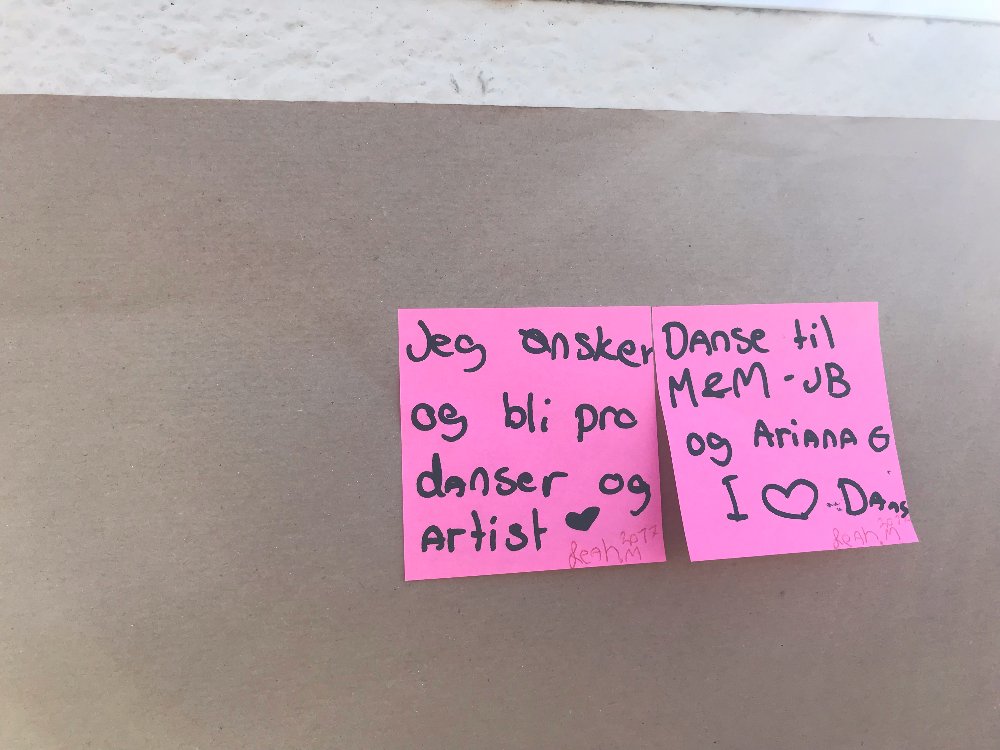 Jeg ønsker
og bli pro
danser og
Artist ♥
Leah.M 2017
DANSE til
M&M - JB
og ARiANA G
I ♡ DANS
Leah.M